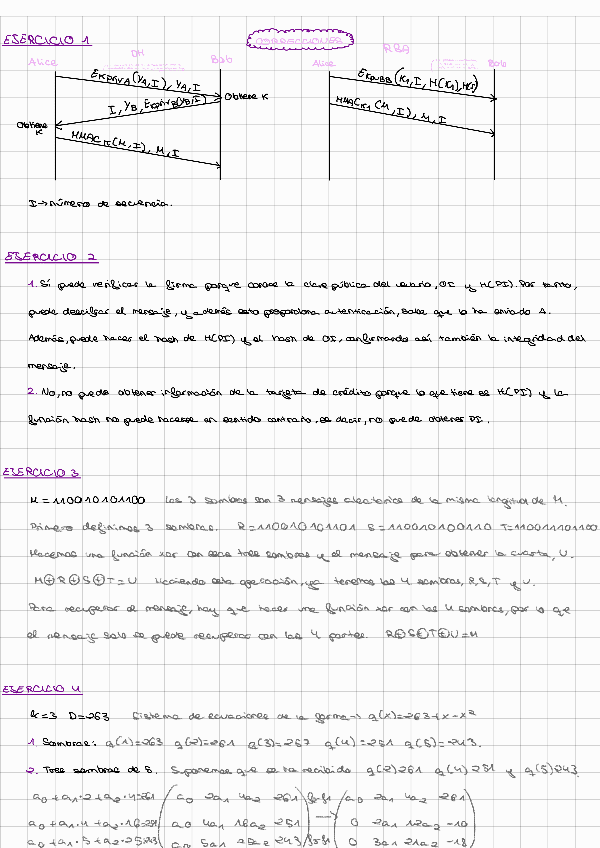 EJERCICIO 1
CORRECCIONES
DH
RSA
Alice
Bob
Alice
Bob
EKprivA (YA, I), YA, I
I, YB, EKprivB(YB, I)
Obtiene K
Obtiene K
HMACK(M, I), M, I
HMACK1 (M, I), M, I
I → número de secuencia.
EJERCICIO 2
1. Sí puede verificar la firma porque conoce la clave pública del usuario, OI y H(PI). Por tanto,
puede descifrar el mensaje, y además esto proporciona autenticación, sabe que lo ha enviado A.
Además, puede hacer el hash de H(PI) y el hash de OI, confirmando así también la integridad del
mensaje.
2. No, no puede obtener información de la tarjeta de crédito porque lo que tiene es H(PI) y la
función hash no puede hacerse en sentido contrario, es decir, no puede obtener PI.
EJERCICIO 3
M = 110010101100 Las 3 sombras son 3 mensajes aleatorios de la misma longitud de M.
Primero definimos 3 sombras. R=110010101101 S=110010100110 T=110011101100
Hacemos una función xor con esas tres sombras y el mensaje para obtener la cuarta, U.
M⊕R⊕S⊕T=U Haciendo esta operación, ya tenemos las 4 sombras, R, S, T y U.
Para recuperar el mensaje, hay que hacer una función xor con las 4 sombras, por lo que
el mensaje solo se puede recuperar con las 4 partes. R⊕S⊕T⊕U=M
EJERCICIO 4
k=3 D=263 Sistema de ecuaciones de la forma → q(x)=263+x-x²
1. Sombras: q(1)=263 q(2)=261 q(3)=257 q(4)=251 q(5)=243.
2. Tres sombras de 5. Suponemos que se ha recibido q(2)261 q(4)251 y q(5)243.
a0+a1·2+a2·4=261 a0 2a1 4a2 261 a0 2a1 4a2 261
a0+a1·4+a2·16=251 a0 4a1 16a2 251 0 2a1 12a2 -10
a0+a1·5+a2·25=243 a0 5a1 25a2 243 0 3a1 21a2 -18